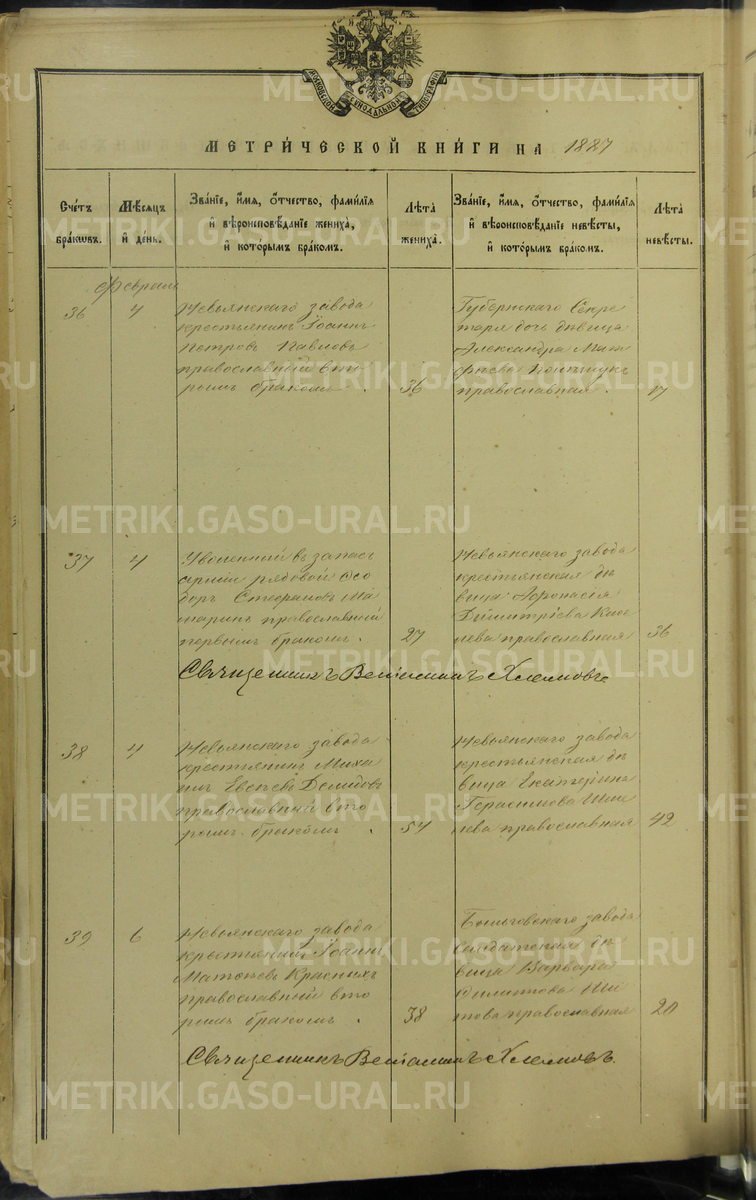 МОСКОВСКОЙ СѴНОДАЛЬНОЙ ТИПОГРАФІИ
МЕТРИ́ЧЕСКОЙ КНИ́ГИ НА 1887
Сче́тъ бра́кωвъ.
Мѣ́сяцъ и҆ де́нь.
Зва́нїе, и҆́мя, ѻ҆́тчество, фами́лїя и҆ вѣроисповѣ́данїе жениха̀, и҆ кото́рымъ бра́комъ.
Лѣта̀ жениха̀.
Зва́нїе, и҆́мя, ѻ҆́тчество, фами́лїя и҆ вѣроисповѣ́данїе невѣ́сты, и҆ кото́рымъ бра́комъ.
Лѣта̀ невѣ́сты.
Февраль
36 4
Невьянскаго завода
крестьянинъ Іоаннъ
Петровъ Павловъ
православный вто
рымъ бракомъ. 36
Губернскаго Секре
таря дочь дѣвица
Александра Мат
фиева
православная. 17
37 4
Уволенный въ запасъ
арміи рядовой Ѳео
доръ Стефановъ Ма
таринъ православный
первымъ бракомъ. 27
Невьянскаго завода
крестьянская дѣ
вица Афонасія
Димитріева Кис
лева православная 36
Священникъ Веніаминъ Хлыновъ.
38 4
Невьянскаго завода
крестьянинъ Миха
илъ Евсѣевъ Демидовъ
православный вто
рымъ бракомъ. 54
Невьянскаго завода
крестьянская дѣ
вица Екатерина
Герасимова Ши
православная 42
39 6
Невьянскаго завода
крестьянинъ Іоаннъ
Матѳеевъ Красныхъ
православный вто
рымъ бракомъ. 38
завода
солдатская дѣ
вица Варвара
Филиппова
това православная 20
Священникъ Веніаминъ Хлыновъ.
METRIKI.GASO-URAL.RU